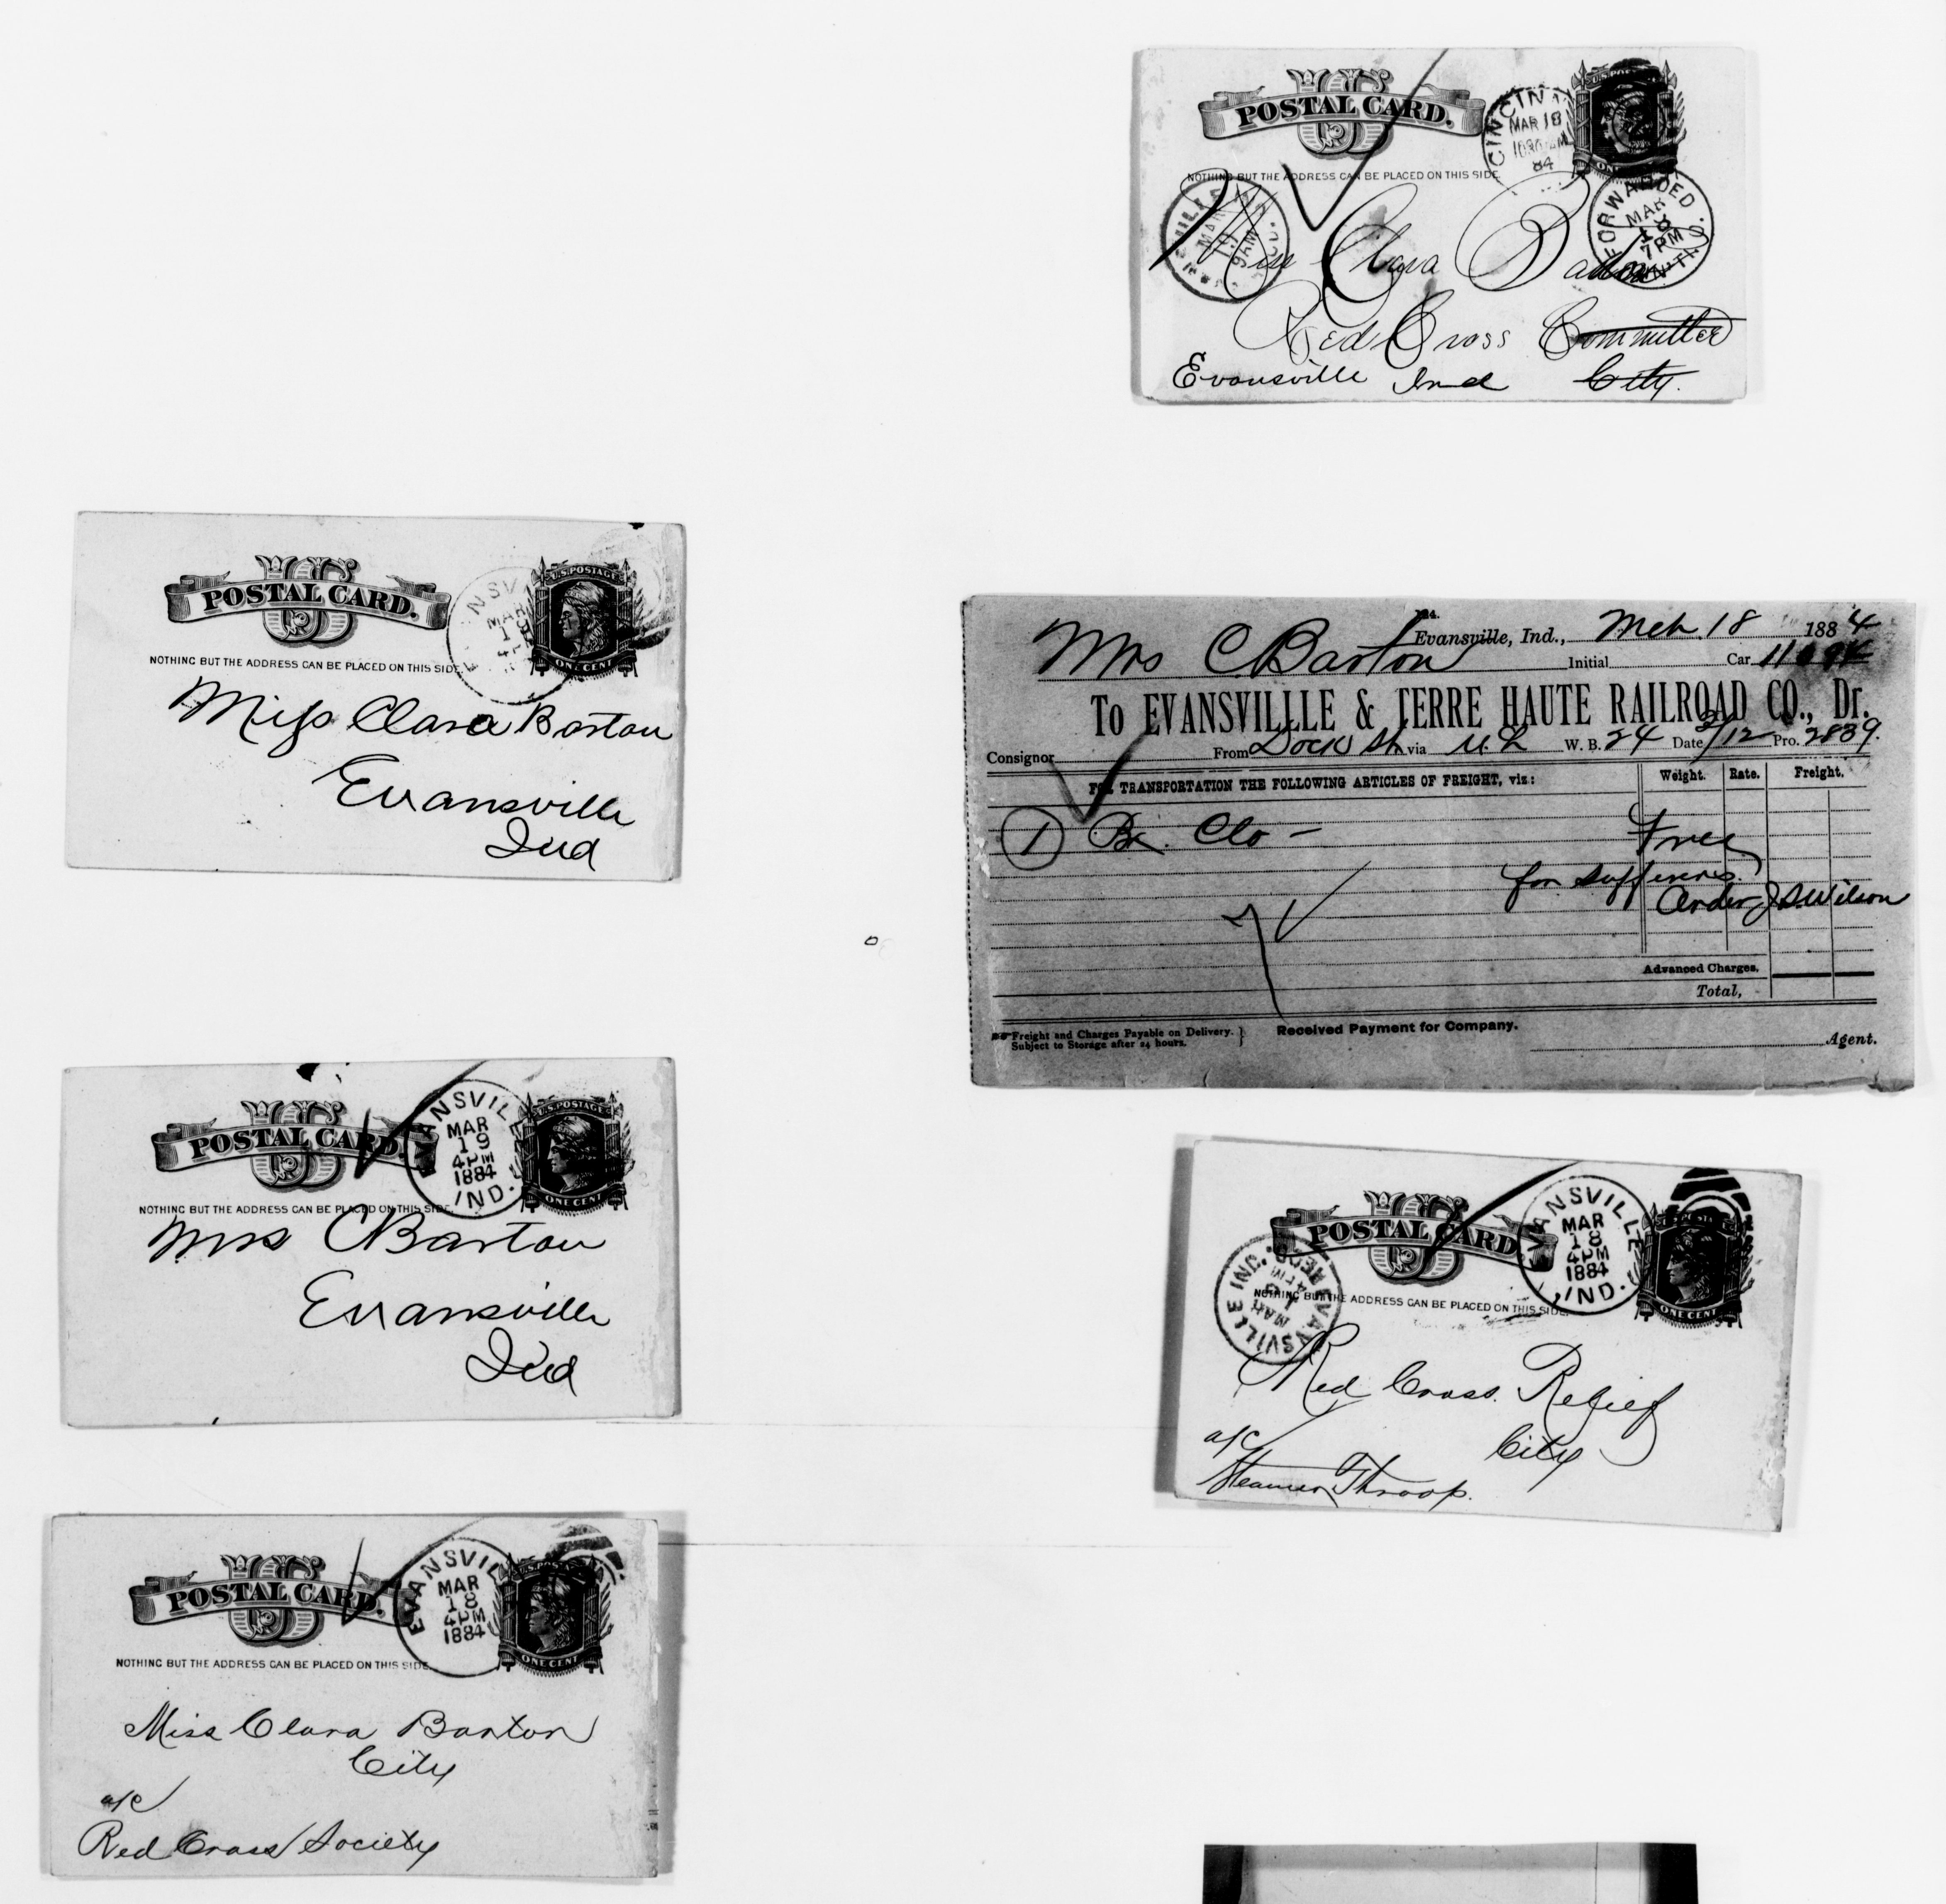 POSTAL CARD.
NOTHING BUT THE ADDRESS CAN BE PLACED ON THIS SIDE.
MAR 18
84
FORWARDED
MAR
18
7PM
MAR
19
9AM
Miss Clara Barton
Red Cross Committee
Evansville Ind City.
U.S. POSTAGE
ONE CENT
POSTAL CARD.
NOTHING BUT THE ADDRESS CAN BE PLACED ON THIS SIDE.
MAR
Miss Clara Barton
Evansville
Ind
Evansville, Ind., Mch. 18 1884
Mrs C Barton
Initial Car
To EVANSVILLLE & TERRE HAUTE RAILROAD CO., Dr.
Consignor From Dock St. via W. B. 24 Date 3/12 Pro. 2839.
FOR TRANSPORTATION THE FOLLOWING ARTICLES OF FREIGHT, viz:
Weight. Rate. Freight.
1 Bx. Clo - Free
for sufferers.
Order J S Wilson
Advanced Charges.
Total,
Freight and Charges Payable on Delivery.
Subject to Storage after 24 hours.
Received Payment for Company.
Agent.
U.S. POSTAGE
ONE CENT
POSTAL CARD.
EVANSVILLE
MAR
19
4PM
1884
IND.
NOTHING BUT THE ADDRESS CAN BE PLACED ON THIS SIDE.
Mrs C Barton
Evansville
Ind
POSTAL CARD.
EVANSVILLE
MAR
18
4PM
1884
IND.
ONE CENT
EVANSVILLE IND.
REC'D
MAR
NOTHING BUT THE ADDRESS CAN BE PLACED ON THIS SIDE.
Red Cross Relief
City
a/c
Steamer Throop.
U.S. POSTAGE
ONE CENT
POSTAL CARD.
EVANSVILLE
MAR
18
4PM
1884
NOTHING BUT THE ADDRESS CAN BE PLACED ON THIS SIDE.
Miss Clara Barton
City
a/c
Red Cross Society